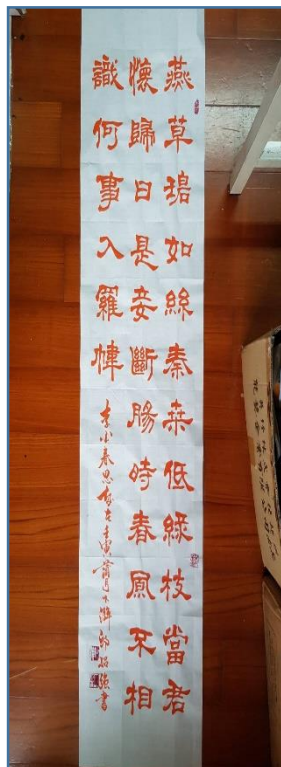 燕草碧如絲秦桒低綠枝當君
懷歸日是妾斷腸時春風不相
識何事入羅幃
李白春思 壬寅 月 書